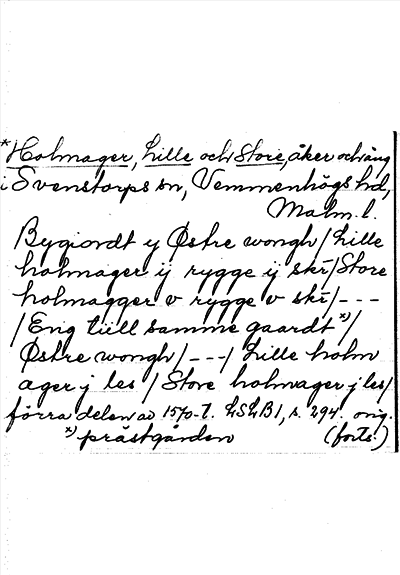 *Holmager, Lille och Store, åker och äng
i Svenstorps sn, Vemmenhögs hd,
Malm. l.
Bygiordt y Østre wongh/Lille
holmager ij rygge ij skr̄/Store
holmagger v rygge v skr̄/---
/Eng tiill samme gaardt*)/
Østre wongh/---/Lille holm
ager j les/Store holmager j les/
förra delen av 1570-t. LSLB 1, s. 294. orig.
*) prästgården (forts.)